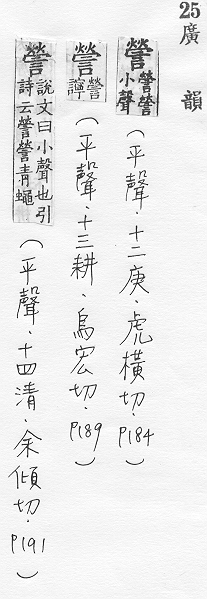 25廣韻
謍 謍謍小聲
（平聲．十二庚．虎橫切．P184）
謍 謍謘
（平聲．十三耕．烏宏切．P189）
謍 說文曰小聲也引詩云謍謍青蠅
（平聲．十四清．余傾切．P191）